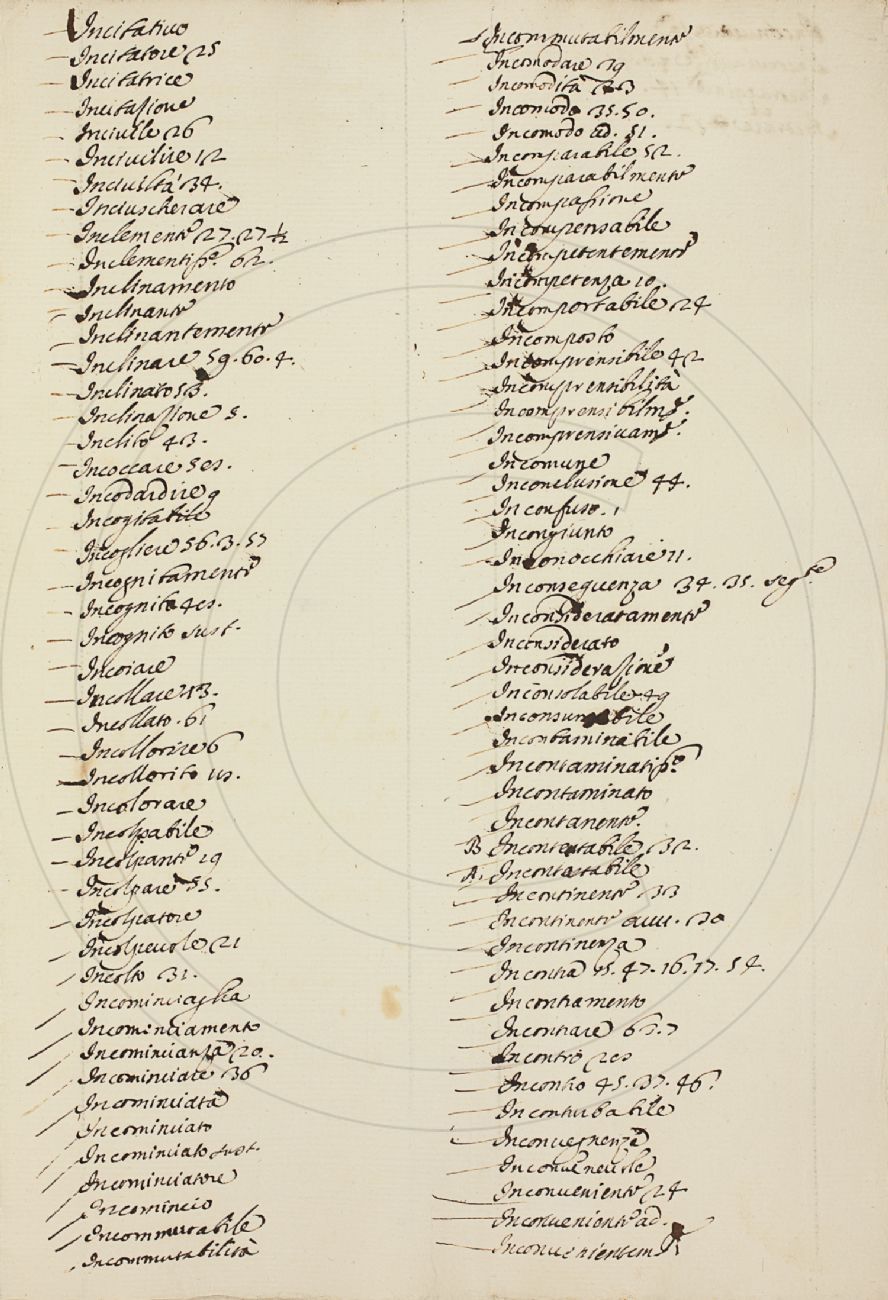 Incitativo
Incitatore 25
Incitatrice
Incitazione
Inciuile 26
Inciuilire 12
Inciuiltà 34.
Inciuscherare
Inclemente 27. 27 ½
Inclementiss.º 62.
Inclinamento
Inclinante
Inclinantemente
Inclinare 59. 60. 4.
Inclinato 53.
Inclinazione 5.
Inclito 43.
Incoccare
Incodardire 9
Incogitabile
Incogliere 56. 3. 57
Incognitamente
Incognito
Incognito sust.
Incoiare
Incollare
Incollato. 61
Incollorire 6
Incollorito
Incolorare
Incolpabile
Incolpante 19
Incolpare 55.
Incolpatore
Incolpeuole 21
Incolto 31.
Incominciaglia
Incominciamento
Incomincianza 20.
Incominciare 36
Incominciata
Incominciato
Incominciato sust.
Incominciatore
Incomincio
Incommutabile
Incommutabilità
Incommutabilmente
Incomodare 19
Incomodità
Incomodo 35. 50.
Incomodo ad. 51.
Incomparabile 52.
Incomparabilmente
Incompassione
Incompensabile
Incompetentemente
Incompetenza 10.
Incomportabile 24
Incomposto
Incomprensibile 42
Incomprensibilità
Incomprensibilm.e
Incomprensiuam.e
Incomune
Inconclusione 44.
Inconfuso. 1
Incongiunto
Inconocchiare 11.
Inconseguenza 34. 35. seg.te
Inconsideratamente
Inconsiderato
Inconsiderazione
Inconsolabile 49
Inconsumabile
Incontaminabile
Incontaminatiss.º
Incontaminato
Incontanente.
B Incontestabile 32.
A. Incontastabile
Incontinente 33
Incontinente auu. 30
Incontinenza
Incontra 15. 47. 16. 17. 54.
Incontramento
Incontrare 63. 7
Incontro
Incontro 45. 37. 46.
Inconturbabile
Inconuegnenza
Inconueneuole
Inconueniente 24
Inconueniente ad.
Inconuenientem.e